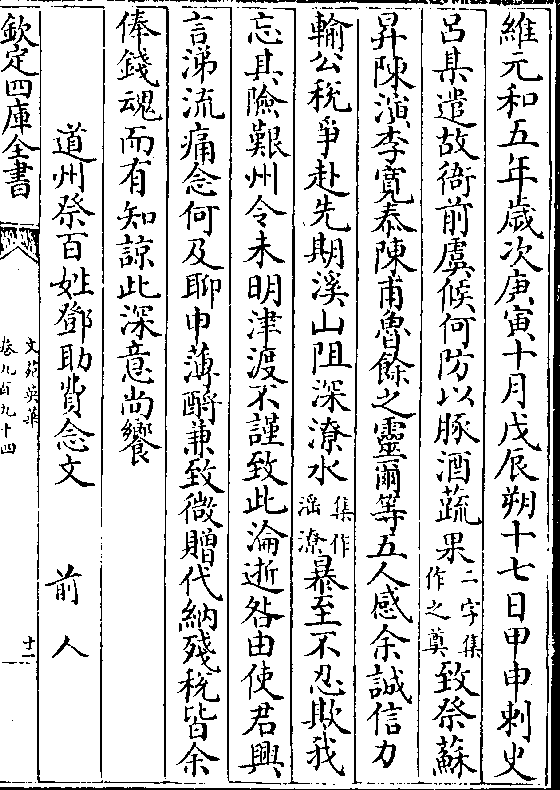 維元和五年歲次庚寅十月戊辰朔十七日甲申刺史
呂某遣故衙前虞候何防以豚酒蔬果二字集作之奠致祭蘇
昇陳濱李寛泰陳甫魯餘之靈爾等五人感余誠信力
輸公稅爭赴先期溪山阻深潦水集作淫潦暴至不忍欺我
忘其險艱州令未明津渡不謹致此淪逝咎由使君興
言涕流痛念何及聊申薄酹兼致微贈代納殘稅皆余
俸錢魂而有知諒此深意尚饗
道州祭百姓鄧助費念文　前人
欽定四庫全書
文苑英華
卷九百九十四
十一